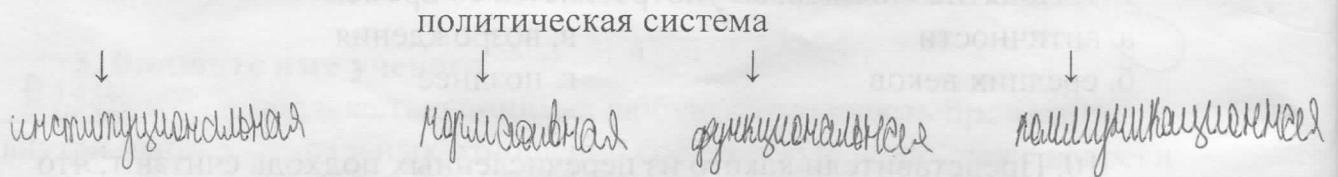 политическая система
↓ ↓ ↓ ↓
институциональная нормативная функциональная коммуникационная